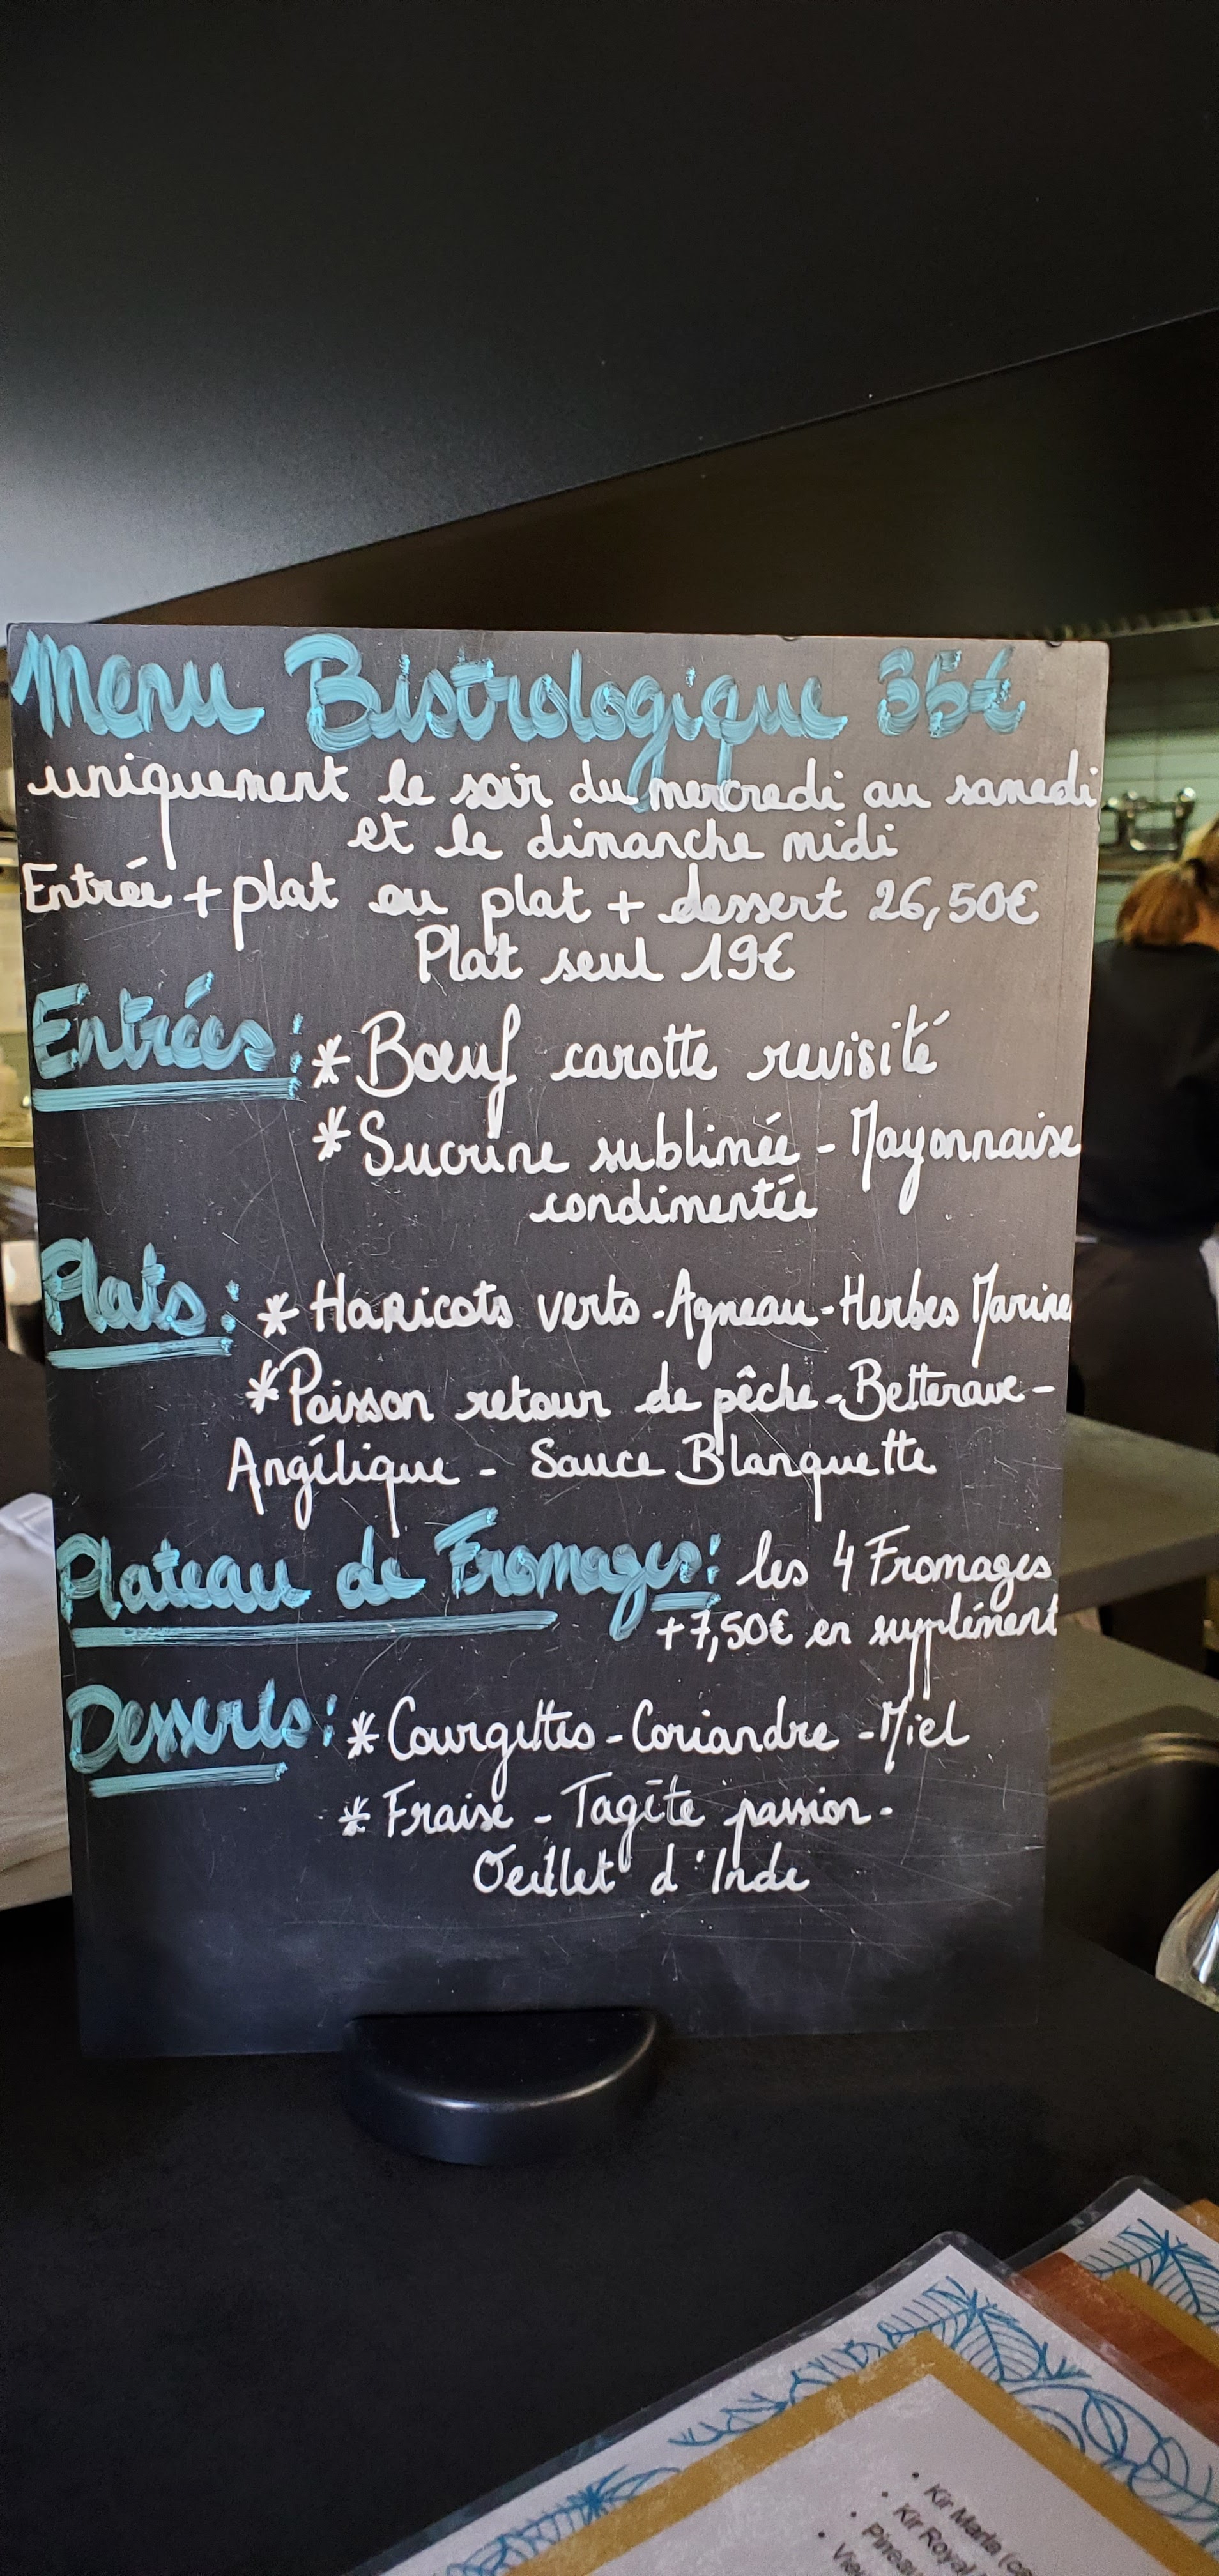 Menu Bistrologique 35€
uniquement le soir du mercredi au samedi
et le dimanche midi
Entrée + plat ou plat + dessert 26,50€
Plat seul 19€
Entrées: * Bœuf carotte revisité
* Sucrine sublimée - Mayonnaise
condimentée
Plats: * Haricots verts - Agneau - Herbes Marine
* Poisson retour de pêche - Betterave -
Angélique - Sauce Blanquette
Plateau de Fromages: les 4 Fromages
+7,50€ en supplément
Desserts: * Courgettes - Coriandre - Miel
* Fraise - Tagète passion -
Oeillet d'Inde
• Kir Maria
• Kir Royal
•
•